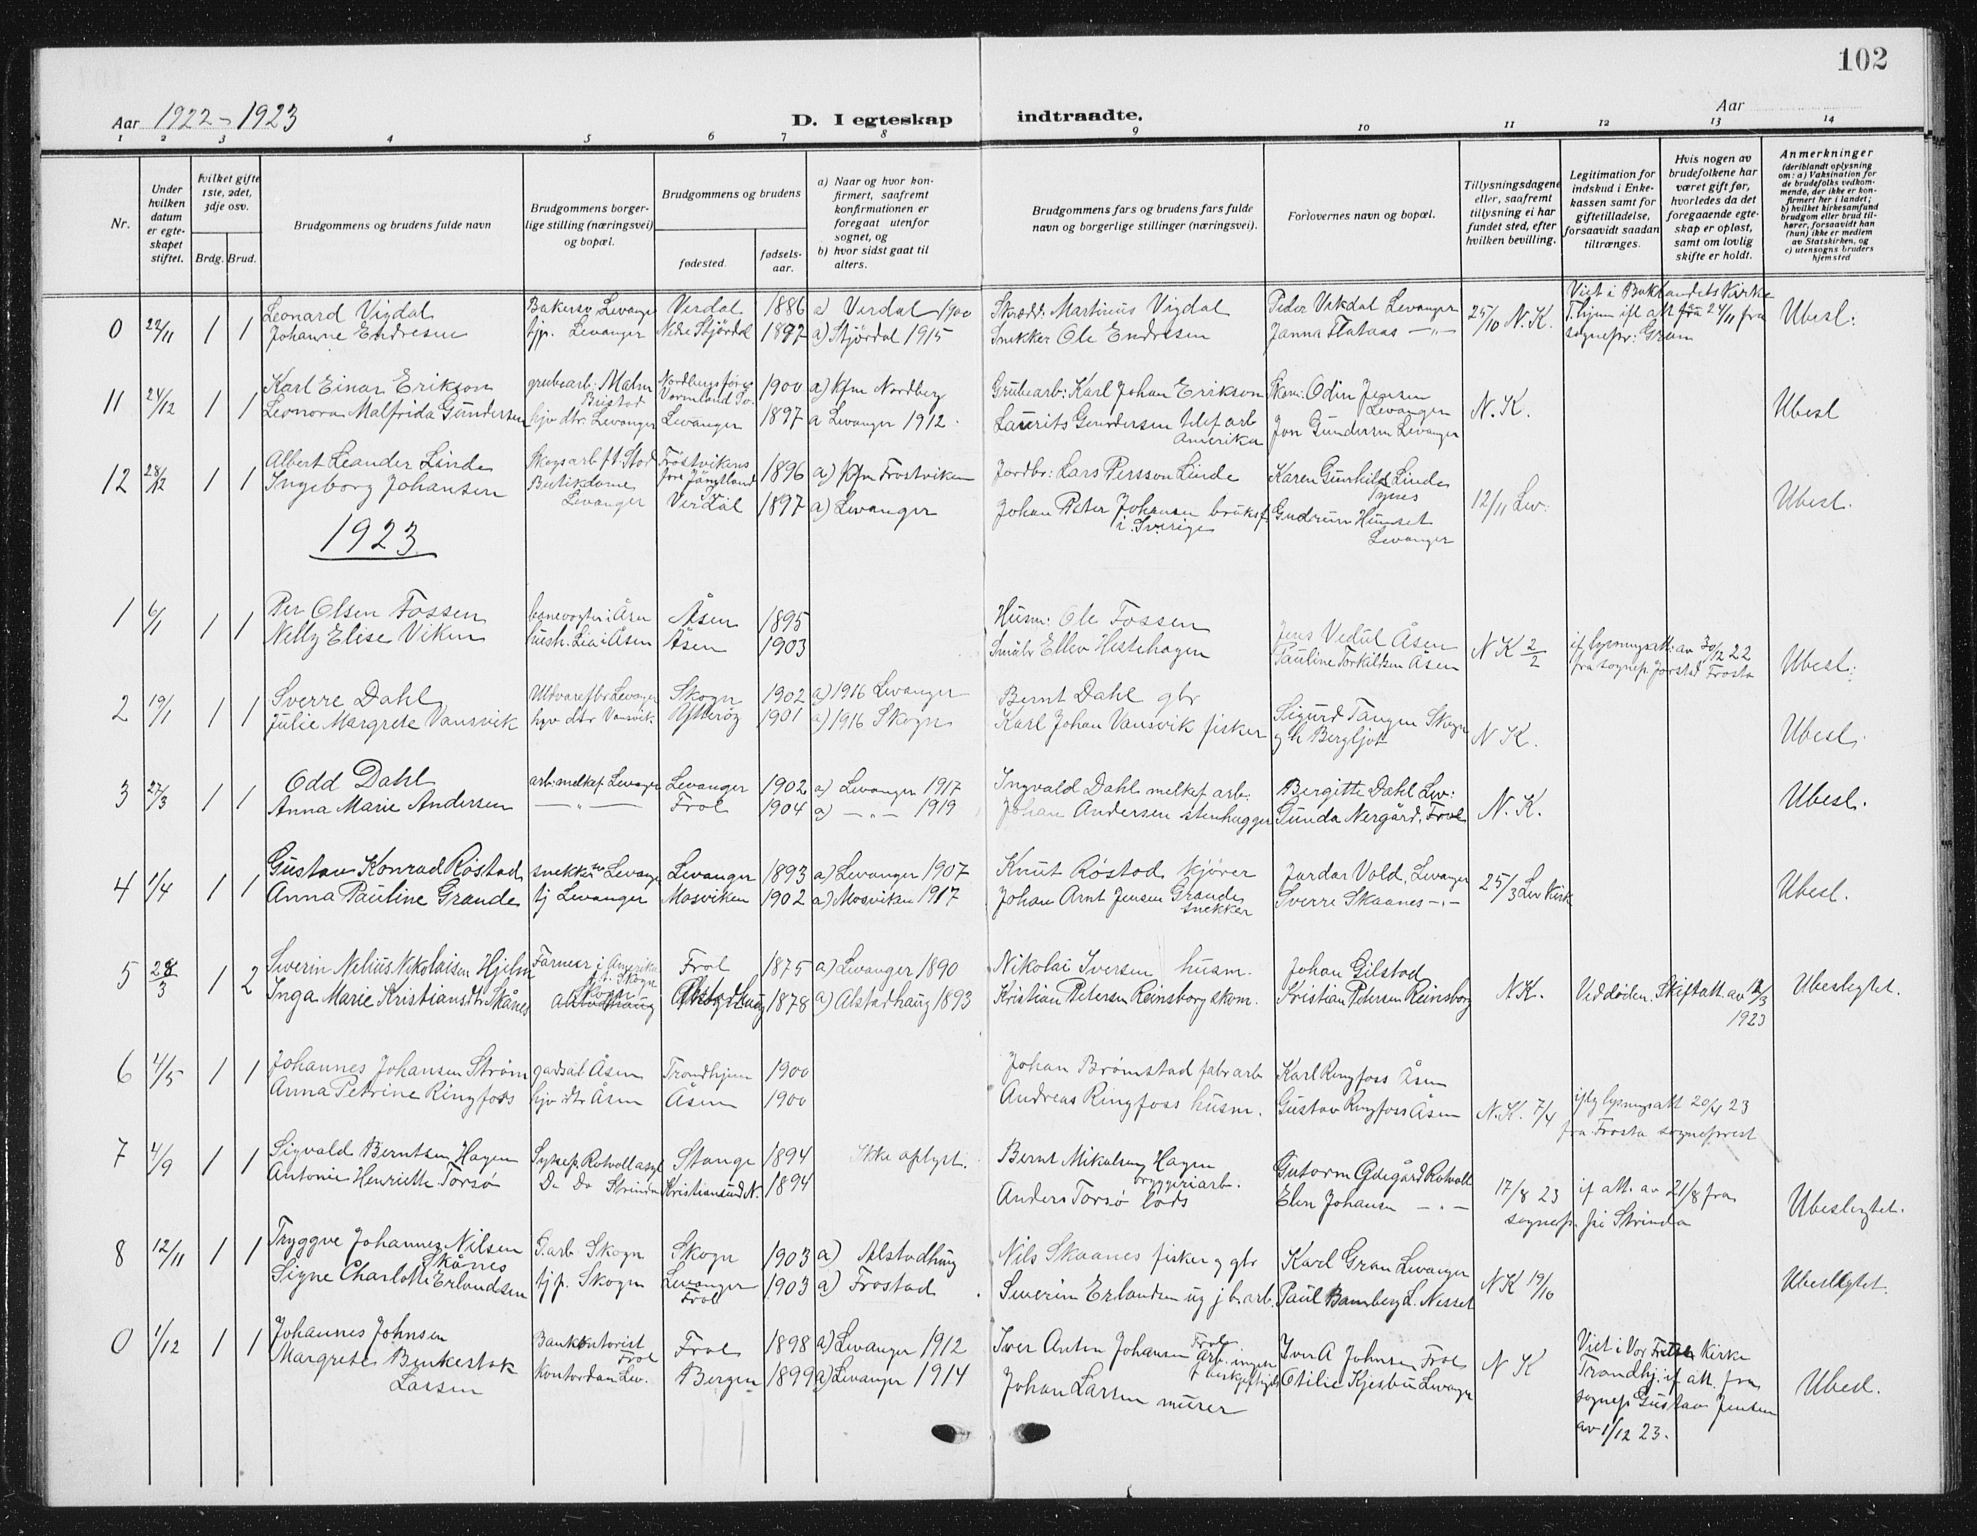 102
Aar 1922-1923
D. I egteskap indtraadte.
Aar
1 2 3 4 5 6 7 8 9 10 11 12 13 14
Nr.
Under hvilken datum er egteskapet stiftet.
Hvilket gifte 1ste, 2det, 3dje osv.
Brdg. Brud.
Brudgommens og brudens fulde navn
Brudgommens borgerlige stilling (næringsvei) og bopæl.
Brudgommens og brudens
fødested.
fødselsaar.
a) Naar og hvor konfirmert, saafremt konfirmationen er foregaat utenfor sognet, og
b) hvor sidst gaat til alters.
Brudgommens fars og brudens fars fulde navn og borgerlige stillinger (næringsvei).
Forlovernes navn og bopæl.
Tillysningsdagene eller, saafremt tillysning ei har fundet sted, efter hvilken bevilling.
Legitimation for indskud i Enkekassen samt for giftetilladelse, forsaavidt saadan tiltrænges.
Hvis nogen av brudefolkene har været gift før, hvorledes da det foregaaende egteskap er opløst, samt om lovlig skifte er holdt.
Anmerkninger (deriblandt oplysning om: a) Vaksination for de brudefolks vedkommende, der ikke er konfirmert her i landet; b) hvilket kirkesamfund brudgom eller brud tilhører, forsaavidt han (hun) ikke er medlem av Statskirken, og c) utensogns bruders hjemsted
0 22/11 1 1 Leonard Vigdal Bakersv Levanger Verdal 1886 a) Verdal 1900 Skrædd. Martinus Vigdal Peder Vekdal Levanger 25/10 N.K. Viet i Baklandets Kirke Ubesl:
Johanne Endresen tjp. Levanger Nedre Stjørdal 1897 a) Stjørdal 1915 Snekker Ole Endresen Janna Flataas —"— T.hjem ifl att fra 24/11 fra
sognepr: Gram
11 24/12 1 1 Karl Einar Erikson grubearb: Malm Beistad Nordbergsføre Vermland Sv. 1900 a) Kfm Nordberg Grubearb: Karl Johan Erikson Skom: Odin Jensen Levanger N.K. Ubesl
Leonora Malfrida Gundersen hjv dtr. Levanger Levanger 1897 a Levanger 1912. Laurits Gundersen telef arb Amerika Jon Gundersen Levanger
12 28/12 1 1 Albert Leander Linde Skogsarb ft. Stod Frostvikens före Jämtland 1896 a) Kfm Frostviken Jordbr: Lars Persson Linde Karen Gunhild Linde 12/11 Lev: Ubesl.
Ingeborg Johansen Butikdame Levanger Verdal 1897 a) Levanger Johan Peter Johansen bruksf. i Sverige Gudrun Humset Levanger
1923
1 6/1 1 1 Per Olsen Fossen banevogter i Åsen Åsen 1895 Husm: Ole Fossen Jens Vedul Åsen NK 2/2 if lysningsatt: av 30/12 22 Ubesl:
Nelly Elise Viken hush. Lia i Åsen Åsen 1903 Småbr Ellev Hestehagen Pauline Torkildsen Åsen fra sognep. Jørstad Frosta
2 19/1 1 1 Sverre Dahl Skogn 1902 a) 1916 Levanger Bernt Dahl gbr Sigurd Tangen Skogn N K. Ubesl.
Julie Margrete Vansvik hjv dtr Vansvik Ytterøy 1901 a) 1916 Skogn Karl Johan Vansvik fisker og h Bergljot
3 27/3 1 1 Odd Dahl arb. melkef Levanger Levanger 1902 a) Levanger 1917 Ingvald Dahl melkef arb: Bergitte Dahl Lev: N.K. Ubesl.
Anna Marie Andersen —"— Frol 1904 a) —"— 1919 Johan Andersen stenhugger Gunda Nergård, Frol
4 1/4 1 1 Gustav Konrad Røstad snekkersv Levanger Levanger 1893 a) Levanger 1907 Knut Røstad kjører Jardar Vold, Levanger 25/3 Lev Kirk Ubesl.
Anna Pauline Grande tj Levanger Mosviken 1902 a) Mosviken 1917 Johan Arnt Jensen Grande snekker Sverre Skaanes —"—
5 28/3 1 2 Severin Nelius Nikolaisen Hjelm Farmer i Amerika ft. Skogn Frol 1875 a) Levanger 1890 Nikolai Iversen husm. Johan Gilstad NK. Ved døden. Skifteatt. av 12/3 1923 Ubeslegtet.
Inga Marie Kristiansdtr Skånes Skogn Alstadhaug Alstadhaug 1878 a) Alstadhaug 1893 Kristian Petersen Reinsborg skom. Kristian Petersen Reinsborg
6 4/5 1 1 Johannes Johansen Strøm gadsal Åsen Trondhjem 1900 Johan Brømstad fabr arb Karl Ringfoss Åsen N.K. 7/4 iflg lysningsatt 20/4 23
Anna Petrine Ringfoss hjv dtr Åsen Åsen 1900 Andreas Ringfoss husm. Gustav Ringfoss Åsen fra Frosta sogneprest
7 4/9 1 1 Sigvald Berntsen Hagen Sykepl Rotvoll asyl Stange 1894 Ikke oplyst. Bernt Mikalsen Hagen bryggeriarb. Gutorm Ødegård Rotvoll 17/8 23 if att. av 21/8 fra Ubeslegtet.
Antonie Henriette Torsø Do Do Strinda Kristiansund N. 1894 Anders Torsø lods Elen Johansen —"— sognep. fri Strinda
8 12/11 1 1 Tryggve Johannes Nilsen Skånes G.arb. Skogn Skogn 1903 a) Alstadhug Nils Skaanes fisker og gbr Karl Gran Levanger NK 19/10 Ubeslegtet.
Signe Charlotte Erlandsen tjp. Skogn Levanger Frol 1903 a) Frostad Severin Erlandsen ug j.b. arb. Paul Bamberg L. Nesset
0 1/12 1 1 Johannes Johnsen Bankkontorist Frol Frol 1898 a) Levanger 1912 Iver Anton Johansen Frol arb. Iver A Johnsen Frol N K Viet i Vor Frue Kirke Ubesl.
Margrete Benkestok Larsen Kontordam Lev. Bergen 1899 a) Levanger 1914 Johan Larsen murer Otilie Kjesbu Levanger Trondhj: if att. fra
sognep Gustav Jensen
av 1/12 23.